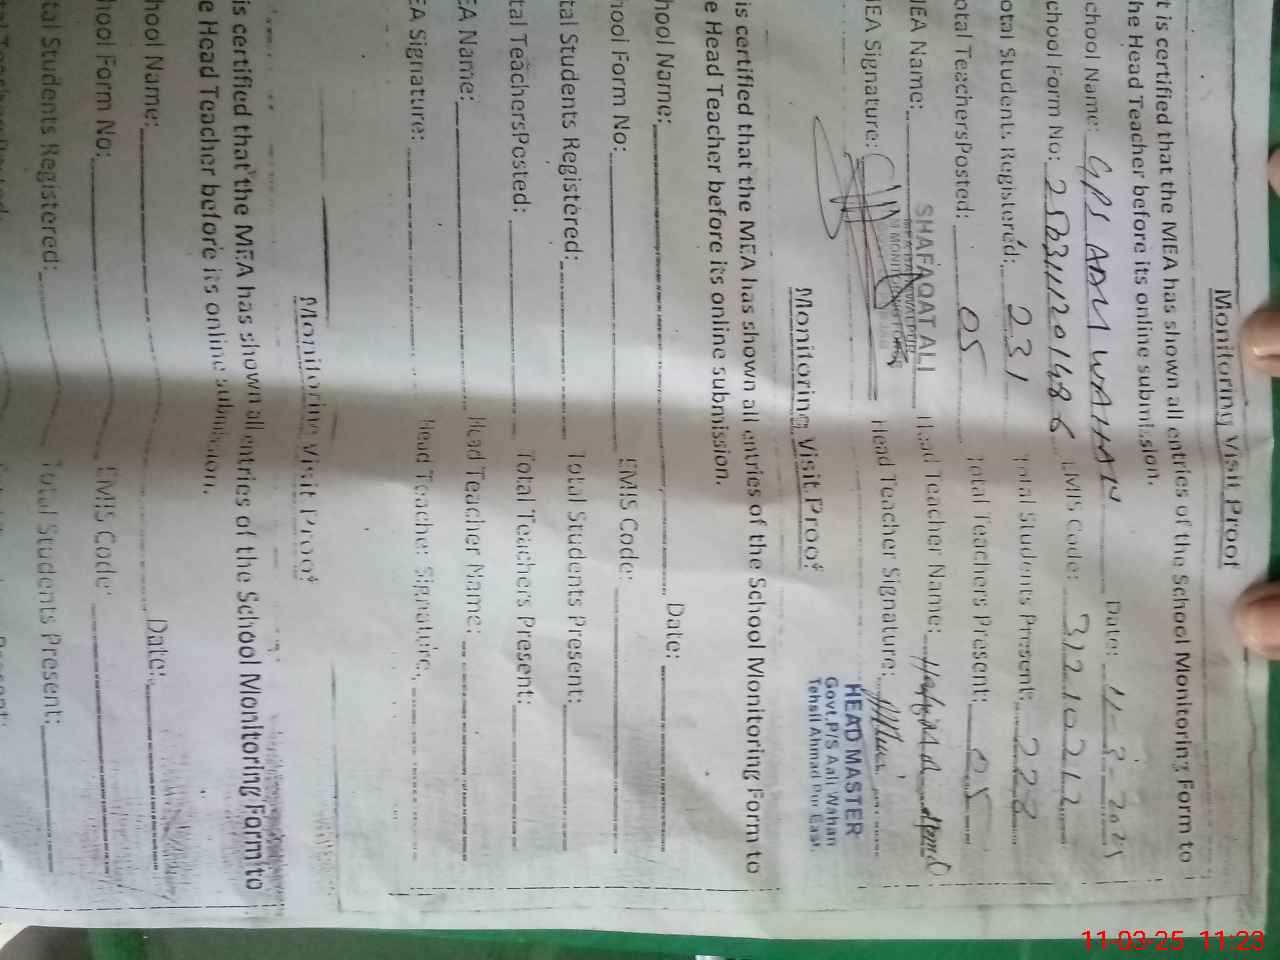 Monitoring Visit Proof
t is certified that the MEA has shown all entries of the School Monitoring Form to
he Head Teacher before its online submission.
chool Name: GPS ADM WAHAN Date: 11-3-2025
chool Form No: Code: 31210212
otal Students Registered: 231 Total Students Present: 228
otal TeachersPosted: 05 Total Teachers Present: 05
MEA Name: SHAFAQAT ALI Head Teacher Name:
MEA Signature: Head Teacher Signature:
HEAD MASTER
Govt.P/S Aali Wahan
Tehsil Ahmad Pur East.
Monitoring Visit Proof
is certified that the MEA has shown all entries of the School Monitoring Form to
e Head Teacher before its online submission.
hool Name: Date:
hool Form No: EMIS Code:
tal Students Registered: Total Students Present:
tal TeachersPosted: Total Teachers Present:
EA Name: Head Teacher Name:
EA Signature: Head Teacher Signature:
Monitoring Visit Proof
is certified that the MEA has shown all entries of the School Monitoring Form to
e Head Teacher before its online submission.
hool Name: Date:
hool Form No: EMIS Code:
tal Students Registered: Total Students Present:
11-03-25 11:23